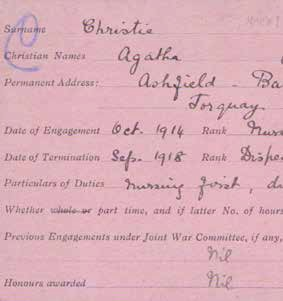 Surname Christie
Christian Names Agatha
Permanent Address: Ashfield - Ba
Torquay.
Date of Engagement Oct. 1914 Rank Nurs
Date of Termination Sep. 1918 Rank Dispe
Particulars of Duties nursing first, di
Whether whole or part time, and if latter No. of hours
Previous Engagements under Joint War Committee, if any,
Nil
Honours awarded Nil